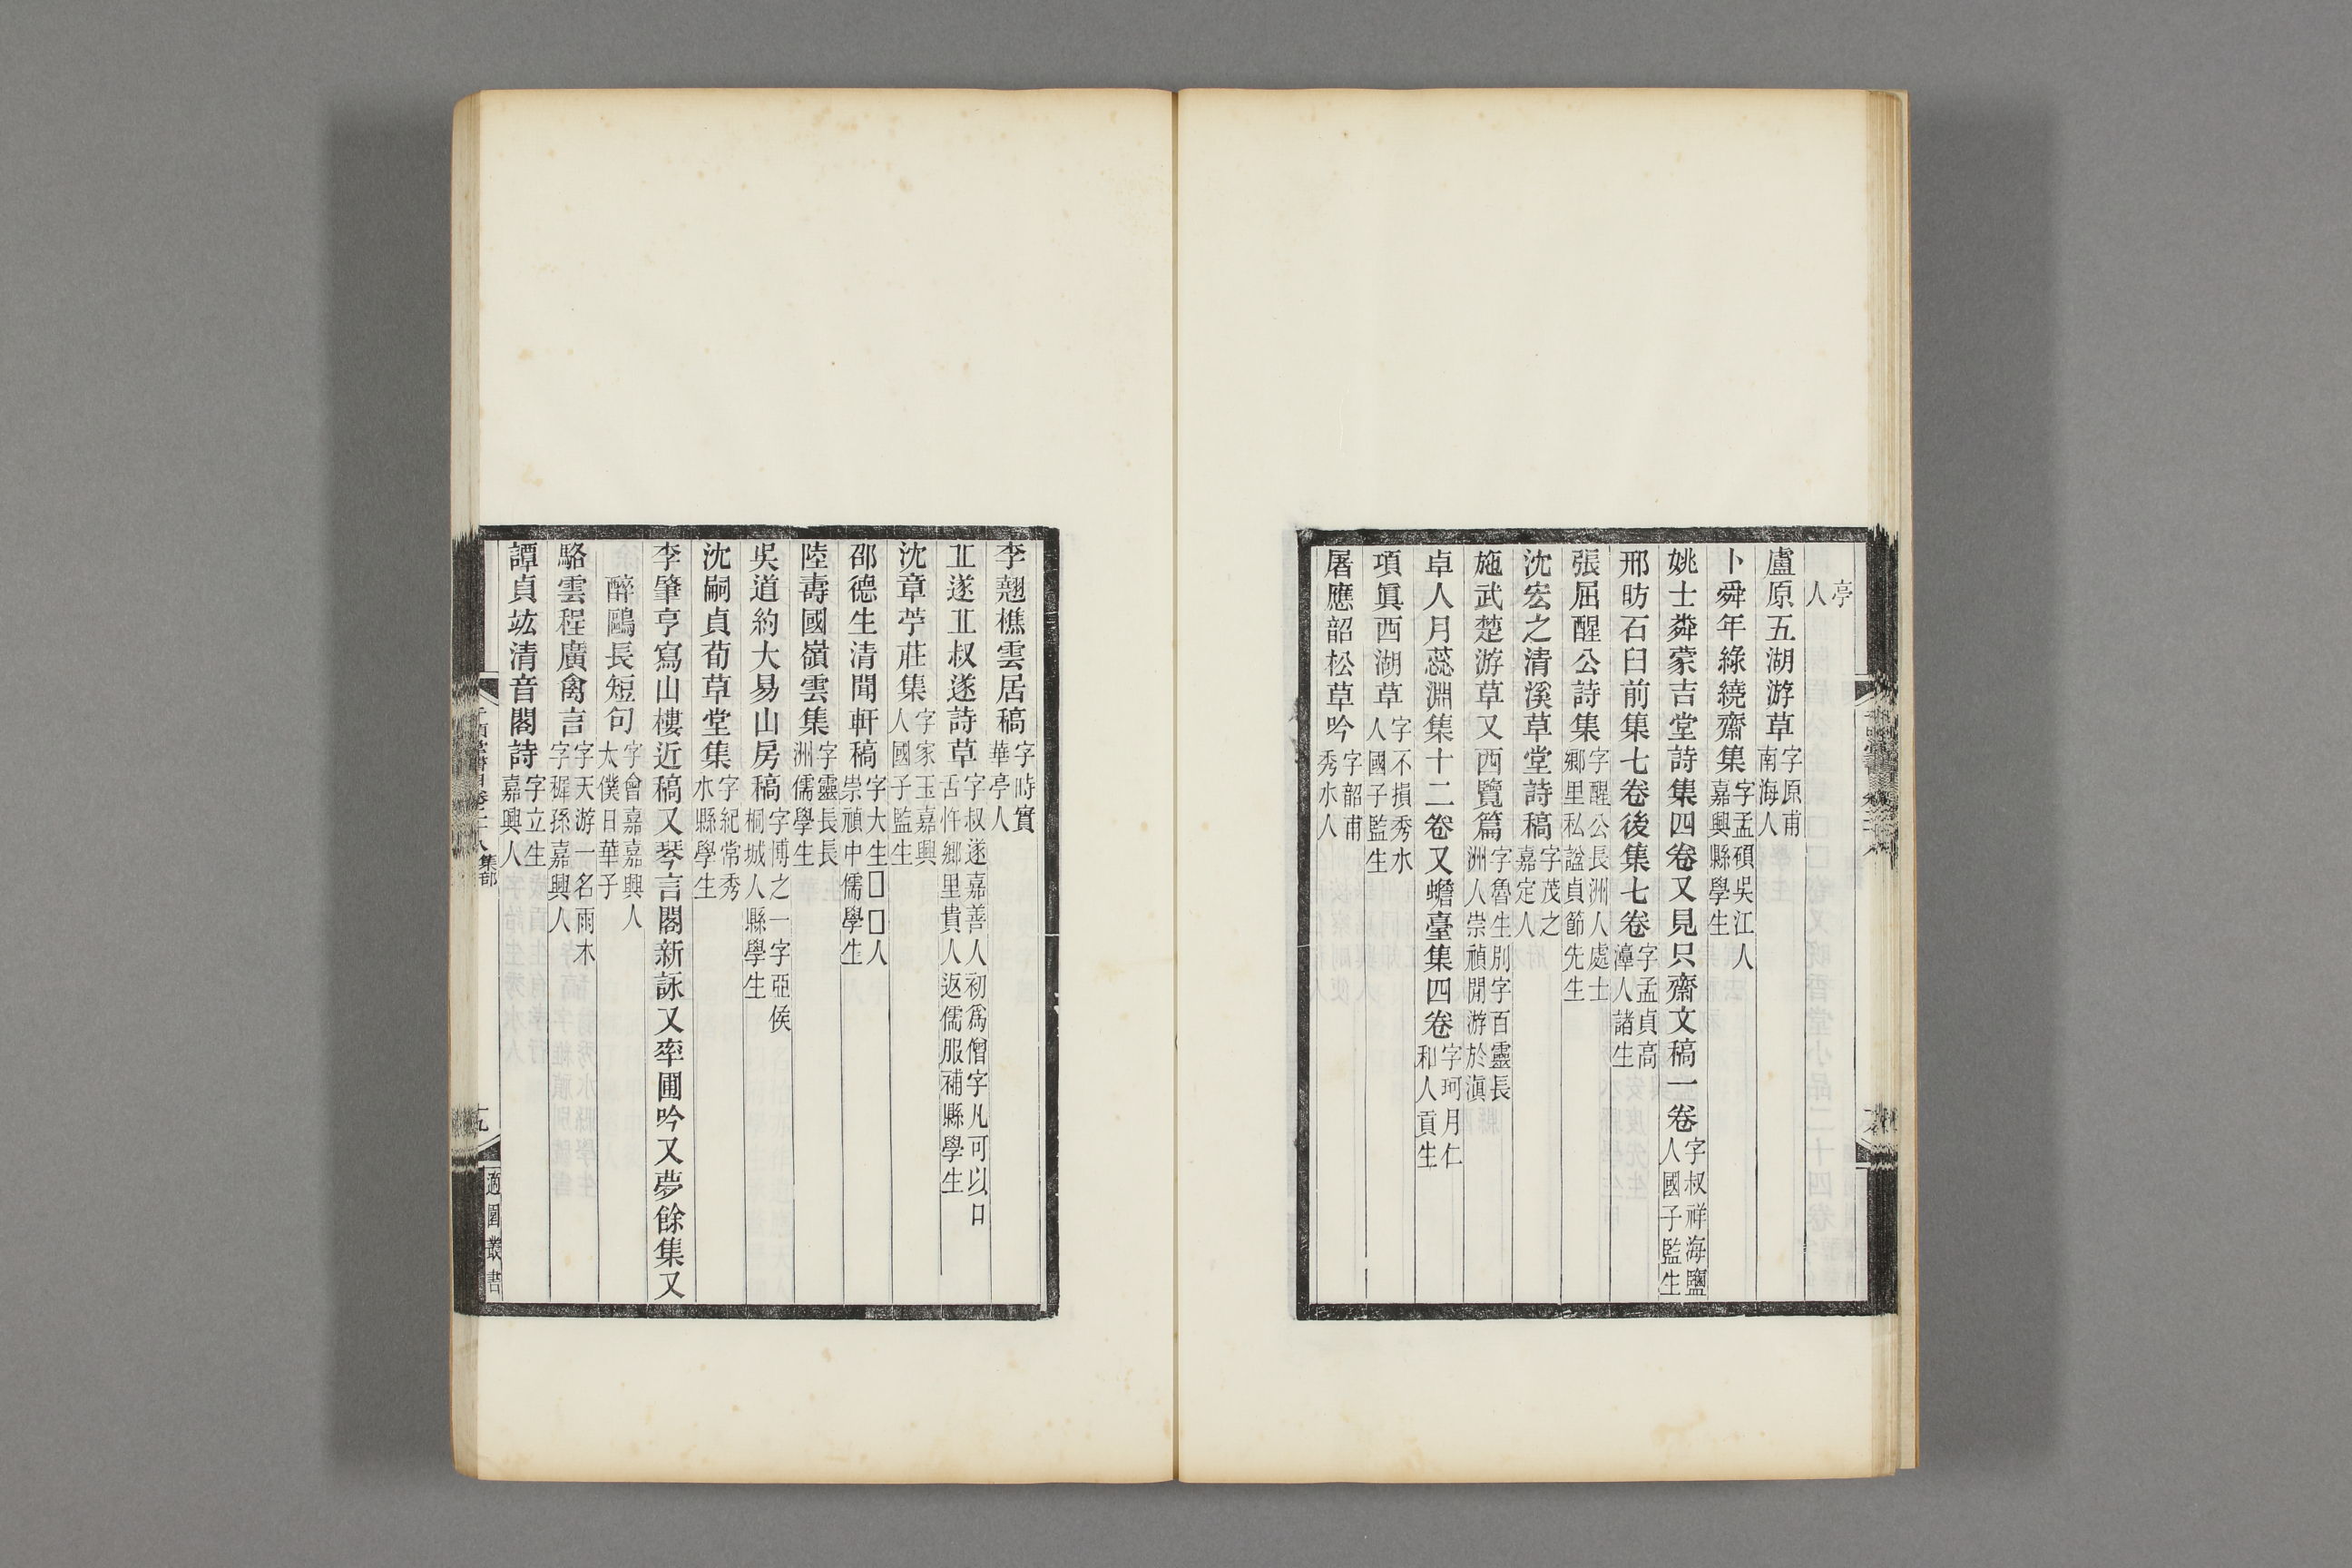 亭人
盧原五湖游草字原甫南海人
卜舜年綠繞齋集字孟碩吳江人嘉興縣學生
姚士粦蒙吉堂詩集四卷又見只齋文稿一卷字叔祥海鹽人國子監生
邢昉石臼前集七卷後集七卷字孟貞高漳人諸生
張屈醒公詩集字醒公長洲人處士鄉里私諡貞節先生
沈宏之清溪草堂詩稿字茂之嘉定人
施武楚游草又西覽篇字魯生別字百靈長洲人崇禎閒游於滇
卓人月蕊淵集十二卷又蟾臺集四卷字珂月仁和人貢生
項眞西湖草字不損秀水人國子監生
屠應韶松草吟字韶甫秀水人
李翹樵雲居稿字時實華亭人
㐀遂㐀叔遂詩草字叔遂嘉善人初爲僧字凡可以口舌忤鄉里貴人返儒服補縣學生
沈章苧莊集字家玉嘉興人國子監生
邵德生清聞軒稿字大生□□人崇禎中儒學生
陸壽國嶺雲集字靈長長洲儒學生
吳道約大易山房稿字博之一字亞侯桐城人縣學生
沈嗣貞荀草堂集字紀常秀水縣學生
李肇亨寫山樓近稿又琴言閣新詠又率圃吟又夢餘集又
醉鷗長短句字會嘉嘉興人太僕日華子
駱雲程廣禽言字天游一名雨木字穉孫嘉興人
譚貞竑清音閣詩字立生嘉興人
千頃堂書目卷二十八集部
十九
適園叢書